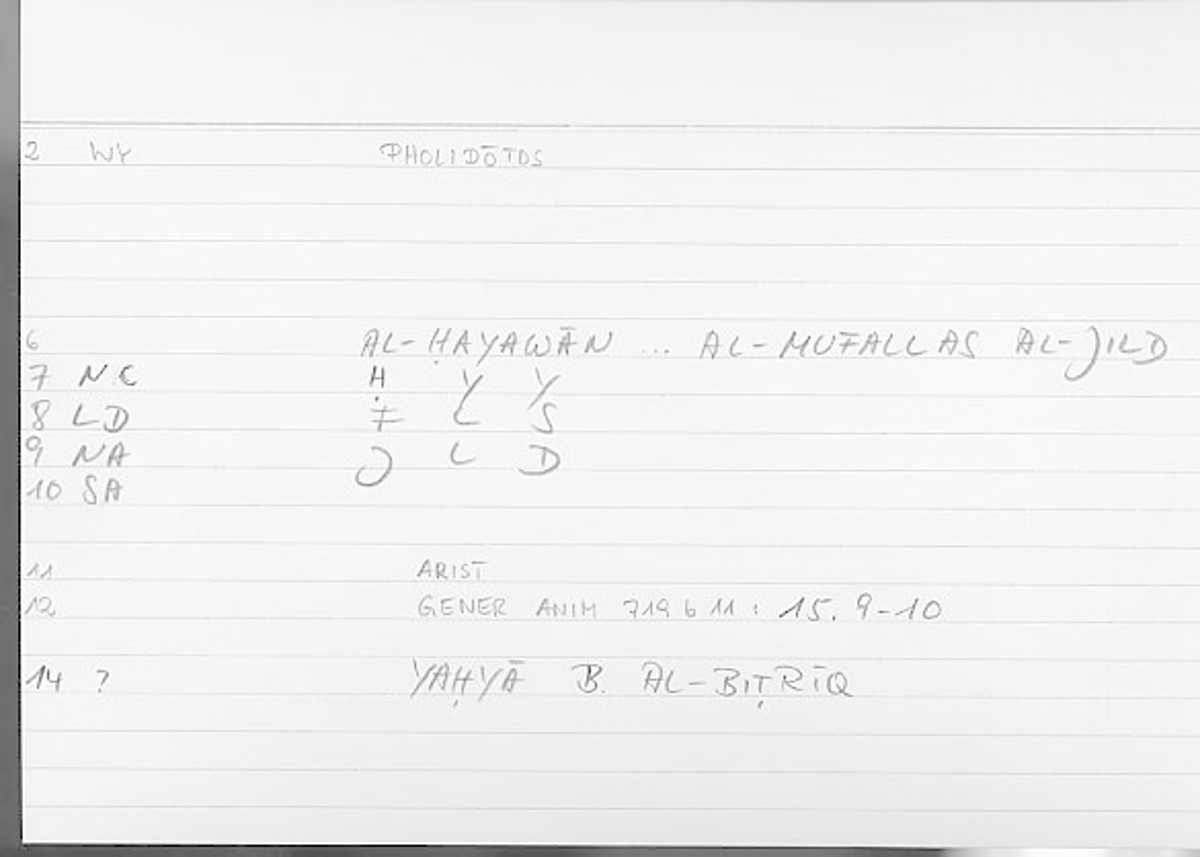 2 WY PHOLIDŌTOS
6 AL-ḤAYAWĀN ... AL-MUFALLAS AL-JILD
7 NC Ḥ Y Y
8 LD F L S
9 NA J L D
10 SA
11 ARIST
12 GENER ANIM 719 b 11 : 15. 9-10
14 ? YAḤYĀ B. AL-BIṬRĪQ